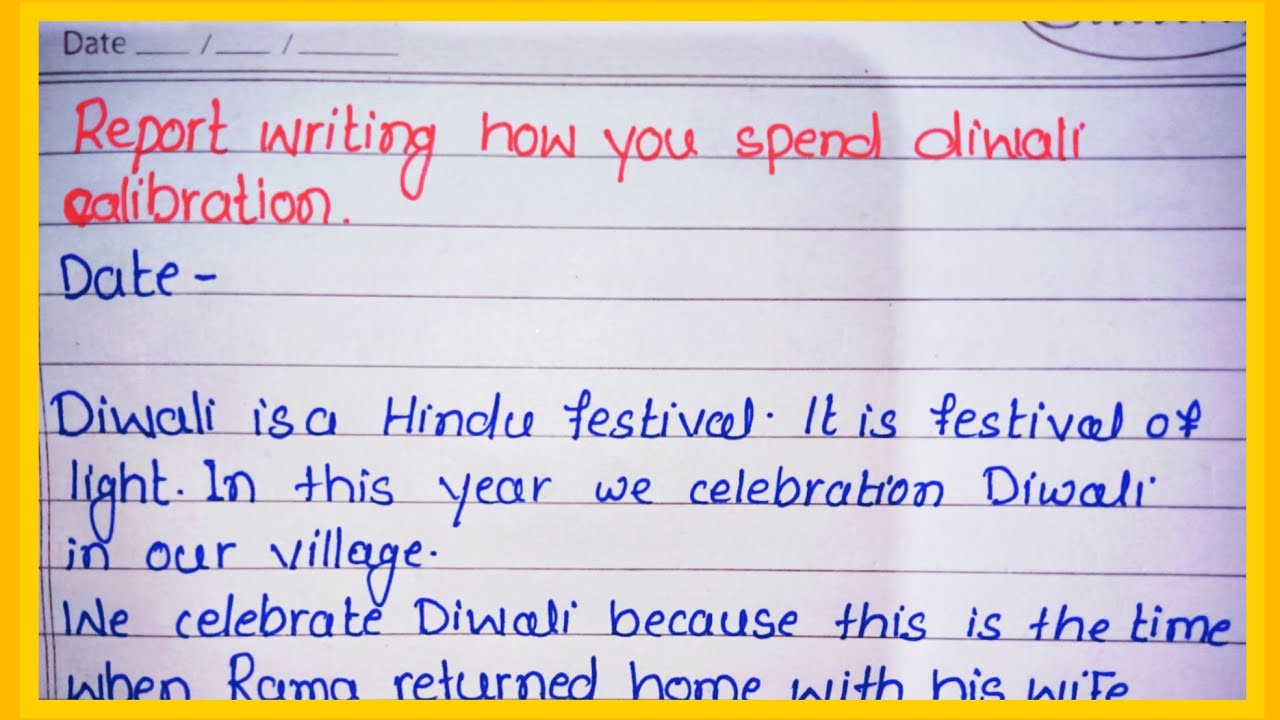 Date ___ /___ /_____
Report writing how you spend diwali
calibration.
Date -
Diwali is a Hindu festival. It is festival of
light. In this year we celebration Diwali
in our village.
We celebrate Diwali because this is the time
when Rama returned home with his wife